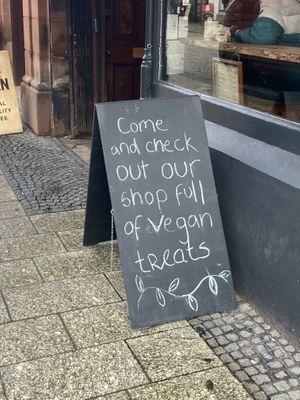 Come
and check
out our
shop full
of vegan
treats